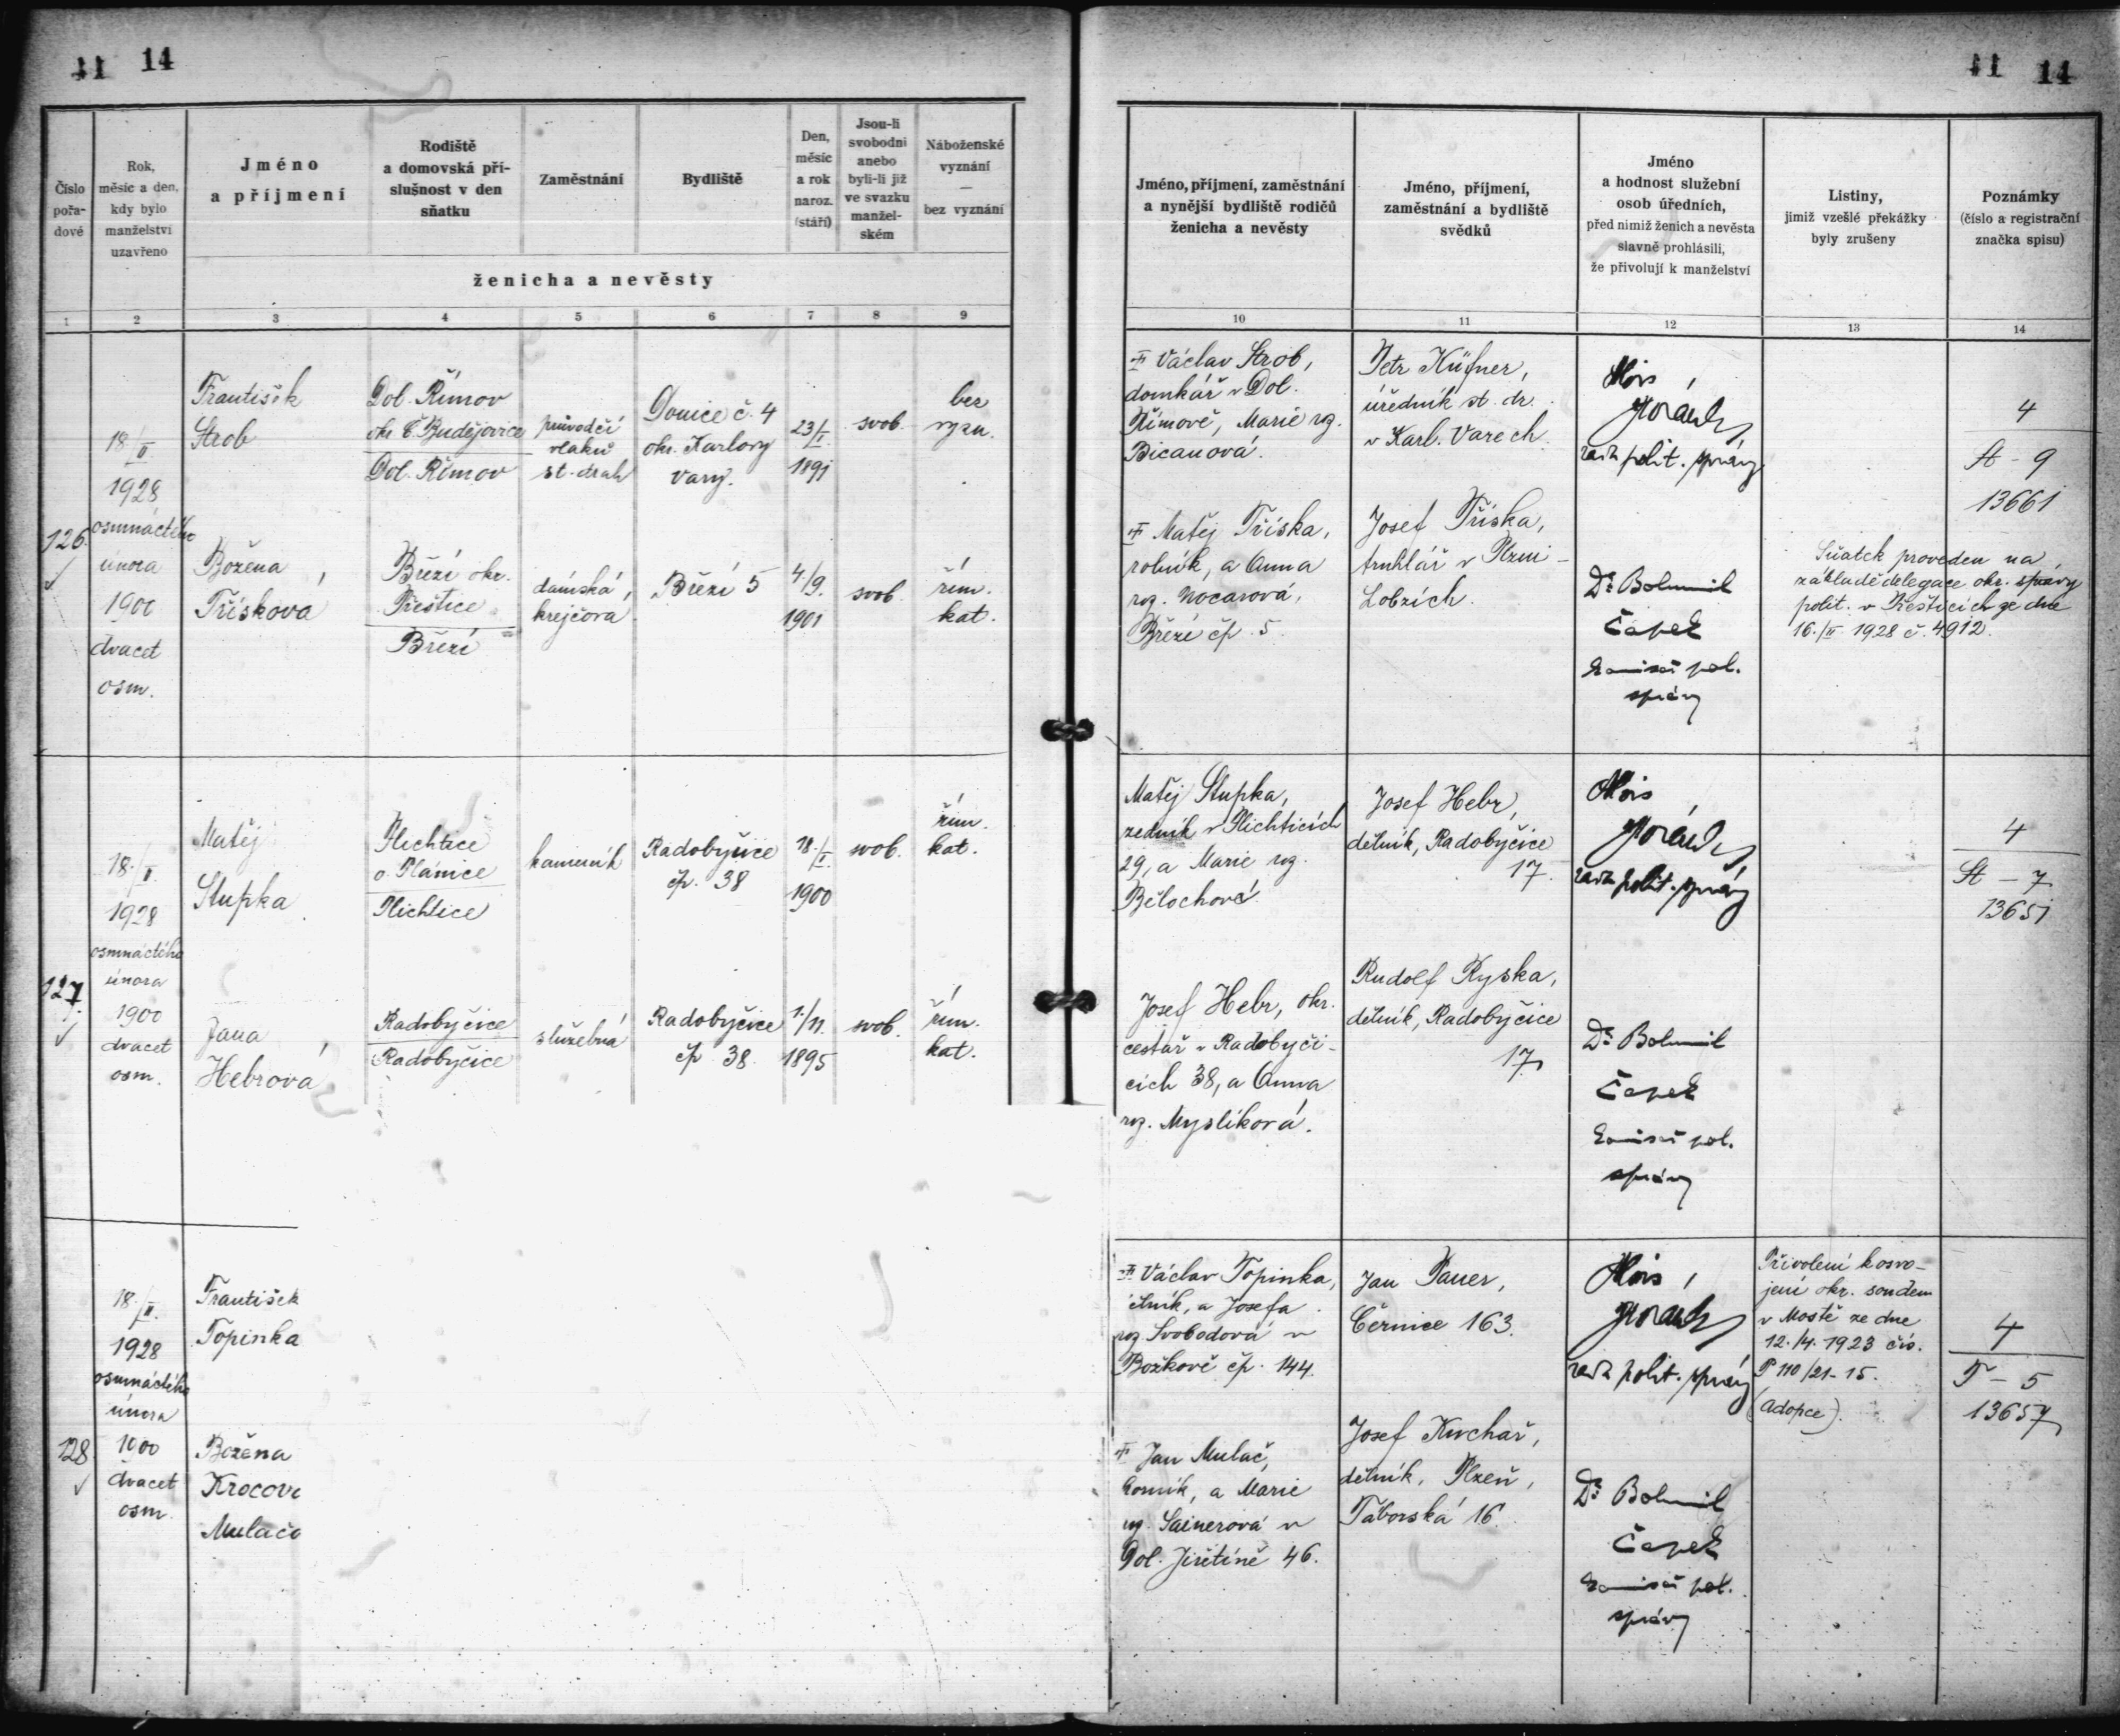 11 14
11 14
Číslo
pořa-
dové
Rok,
měsíc a den,
kdy bylo
manželství
uzavřeno
Jméno
a příjmení
Rodiště
a domovská pří-
slušnost v den
sňatku
Zaměstnání
Bydliště
Den,
měsíc
a rok
naroz.
(stáří)
Jsou-li
svobodni
anebo
byli-li již
ve svazku
manžel-
ském
Náboženské
vyznání
—
bez vyznání
ženicha a nevěsty
1 2 3 4 5 6 7 8 9
Jméno, příjmení, zaměstnání
a nynější bydliště rodičů
ženicha a nevěsty
Jméno, příjmení,
zaměstnání a bydliště
svědků
Jméno
a hodnost služební
osob úředních,
před nimiž ženich a nevěsta
slavně prohlásili,
že přivolují k manželství
Listiny,
jimiž vzešlé překážky
byly zrušeny
Poznámky
(číslo a registrační
značka spisu)
10 11 12 13 14
126.
18./II.
1928
osmnáctého
února
1900
dvacet
osm.
František
Strob
Dol. Římov
okr. Č. Budějovice
Dol. Římov
průvodčí
vlaků
st. drah
Donice č. 4
okr. Karlovy
Vary.
23/I.
1891
svob.
bez
vyzn.
Božena
Třísková
Březí okr.
Přeštice
Březí
dámská
krejčová
Březí 5
4./9.
1901
svob.
řím.
kat.
Václav Strob,
domkář v Dol.
Římově, Marie rz.
Bicanová.
Petr Küfner,
úředník st. dr.
v Karl. Varech.
Alois
rada polit. správy
4
St - 9
13661
Matěj Tříska,
rolník, a Anna
rz. Nocarová,
Březí čp. 5.
Josef Tříska,
truhlář v Plzni -
Lobzích.
Dr Bohumil
Čapek
komisař pol.
správy
Sňatek proveden na
základě delegace okr. správy
polit. v Přešticích ze dne
16./II. 1928 č. 4912.
127.
18./II.
1928
osmnáctého
února
1900
dvacet
osm.
Matěj
Stupka
Plichtice
o. Plánice
Plichtice
kameník
Radobyčice
čp. 38
18./I.
1900
svob.
řím.
kat.
Jana
Hebrová
Radobyčice
Radobyčice
služebná
Radobyčice
čp 38.
1./11.
1895
svob.
řím.
kat.
Matěj Stupka,
zedník v Plichticích
29, a Marie rz.
Bělochová.
Josef Hebr,
dělník, Radobyčice
17.
Alois
rada polit. správy
4
St - 7
13651
Josef Hebr, okr.
cestář v Radobyči-
cích 38, a Anna
rz. Myslíková.
Rudolf Ryska,
dělník, Radobyčice
17
Dr Bohumil
Čapek
komisař pol.
správy
128
18./II.
1928
osmnáctého
února
1900
dvacet
osm.
František
Topinka
Božena
Krocov
Mulačo
Václav Topinka,
rz. Svobodová v
Božkově čp. 144.
Jan Pauer,
Černice 163.
Alois
rada polit. správy
Přivolení k osvo-
jení okr. soudem
v Mostě ze dne
12./4. 1923 čís.
P 110/21-15.
(Adopce).
4
T - 5
13657
Jan Mulač,
horník, a Marie
rz. Sainerová v
Dol. Jiřetíně 46.
Josef Kuchař,
dělník, Plzeň,
Táborská 16.
Dr Bohumil
Čapek
komisař pol.
správy